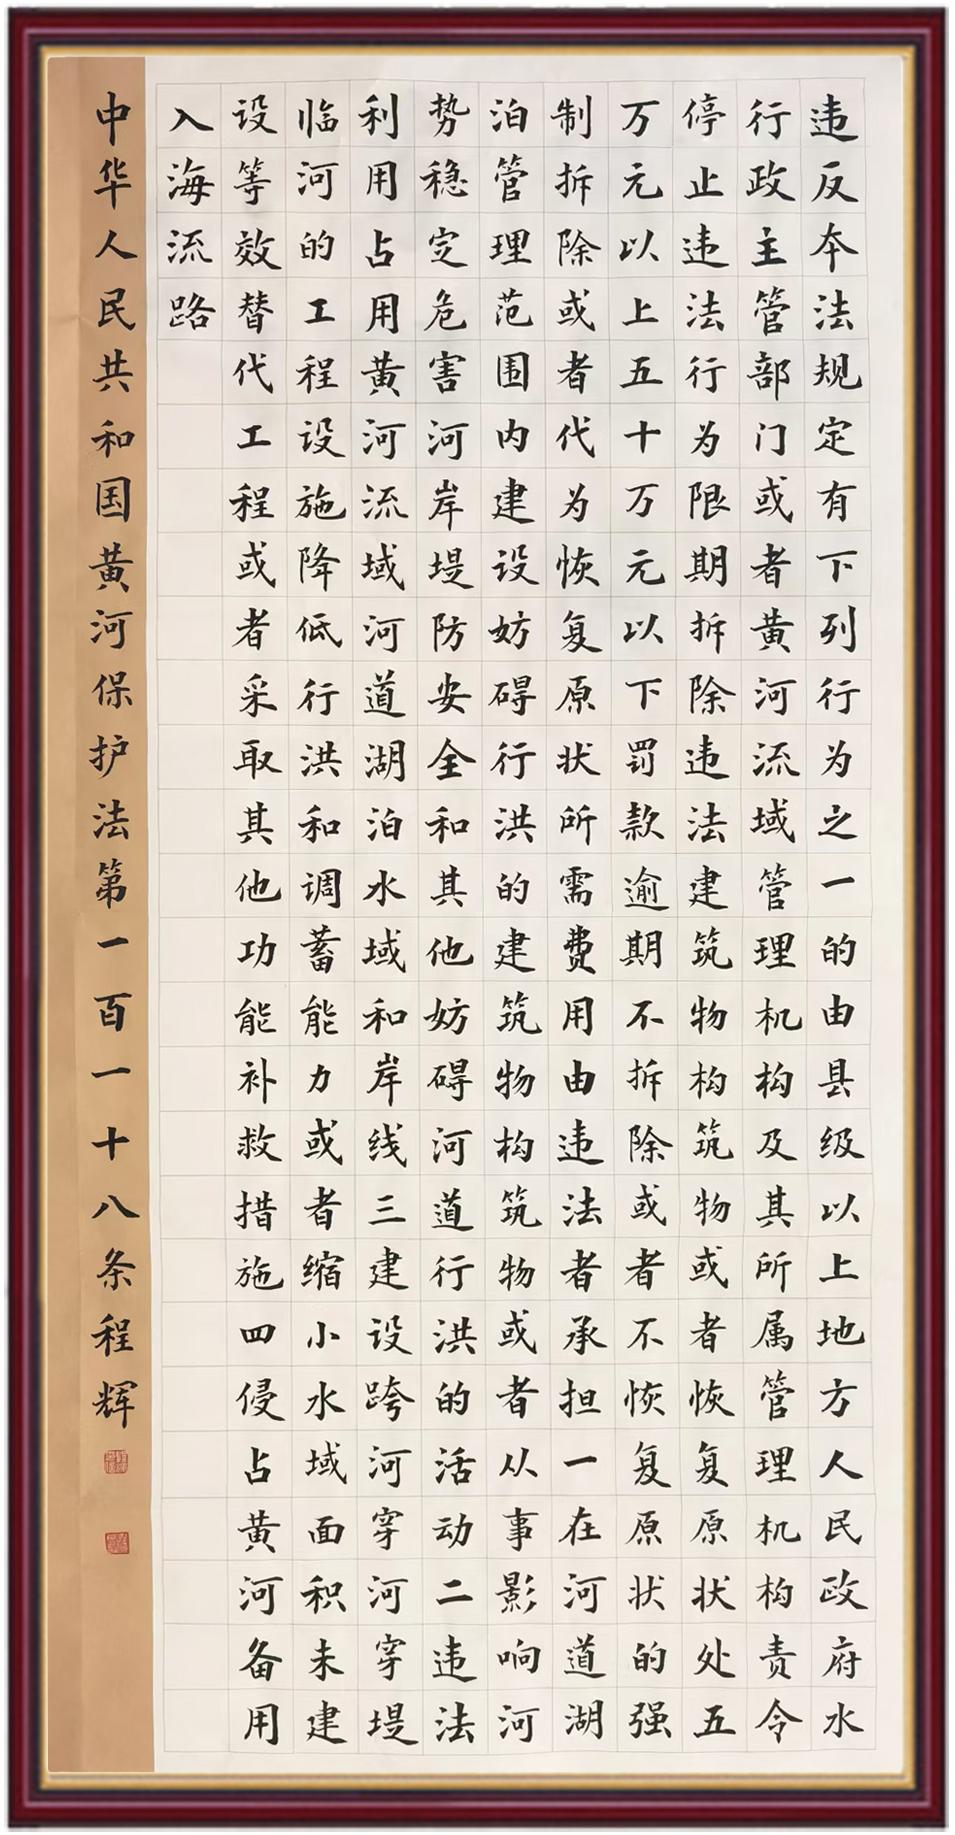 违反本法规定有下列行为之一的由县级以上地方人民政府水
行政主管部门或者黄河流域管理机构及其所属管理机构责令
停止违法行为限期拆除违法建筑物构筑物或者恢复原状处五
万元以上五十万元以下罚款逾期不拆除或者不恢复原状的强
制拆除或者代为恢复原状所需费用由违法者承担一在河道湖
泊管理范围内建设妨碍行洪的建筑物构筑物或者从事影响河
势稳定危害河岸堤防安全和其他妨碍河道行洪的活动二违法
利用占用黄河流域河道湖泊水域和岸线三建设跨河穿河穿堤
临河的工程设施降低行洪和调蓄能力或者缩小水域面积未建
设等效替代工程或者采取其他功能补救措施四侵占黄河备用
入海流路
中华人民共和国黄河保护法第一百一十八条程辉